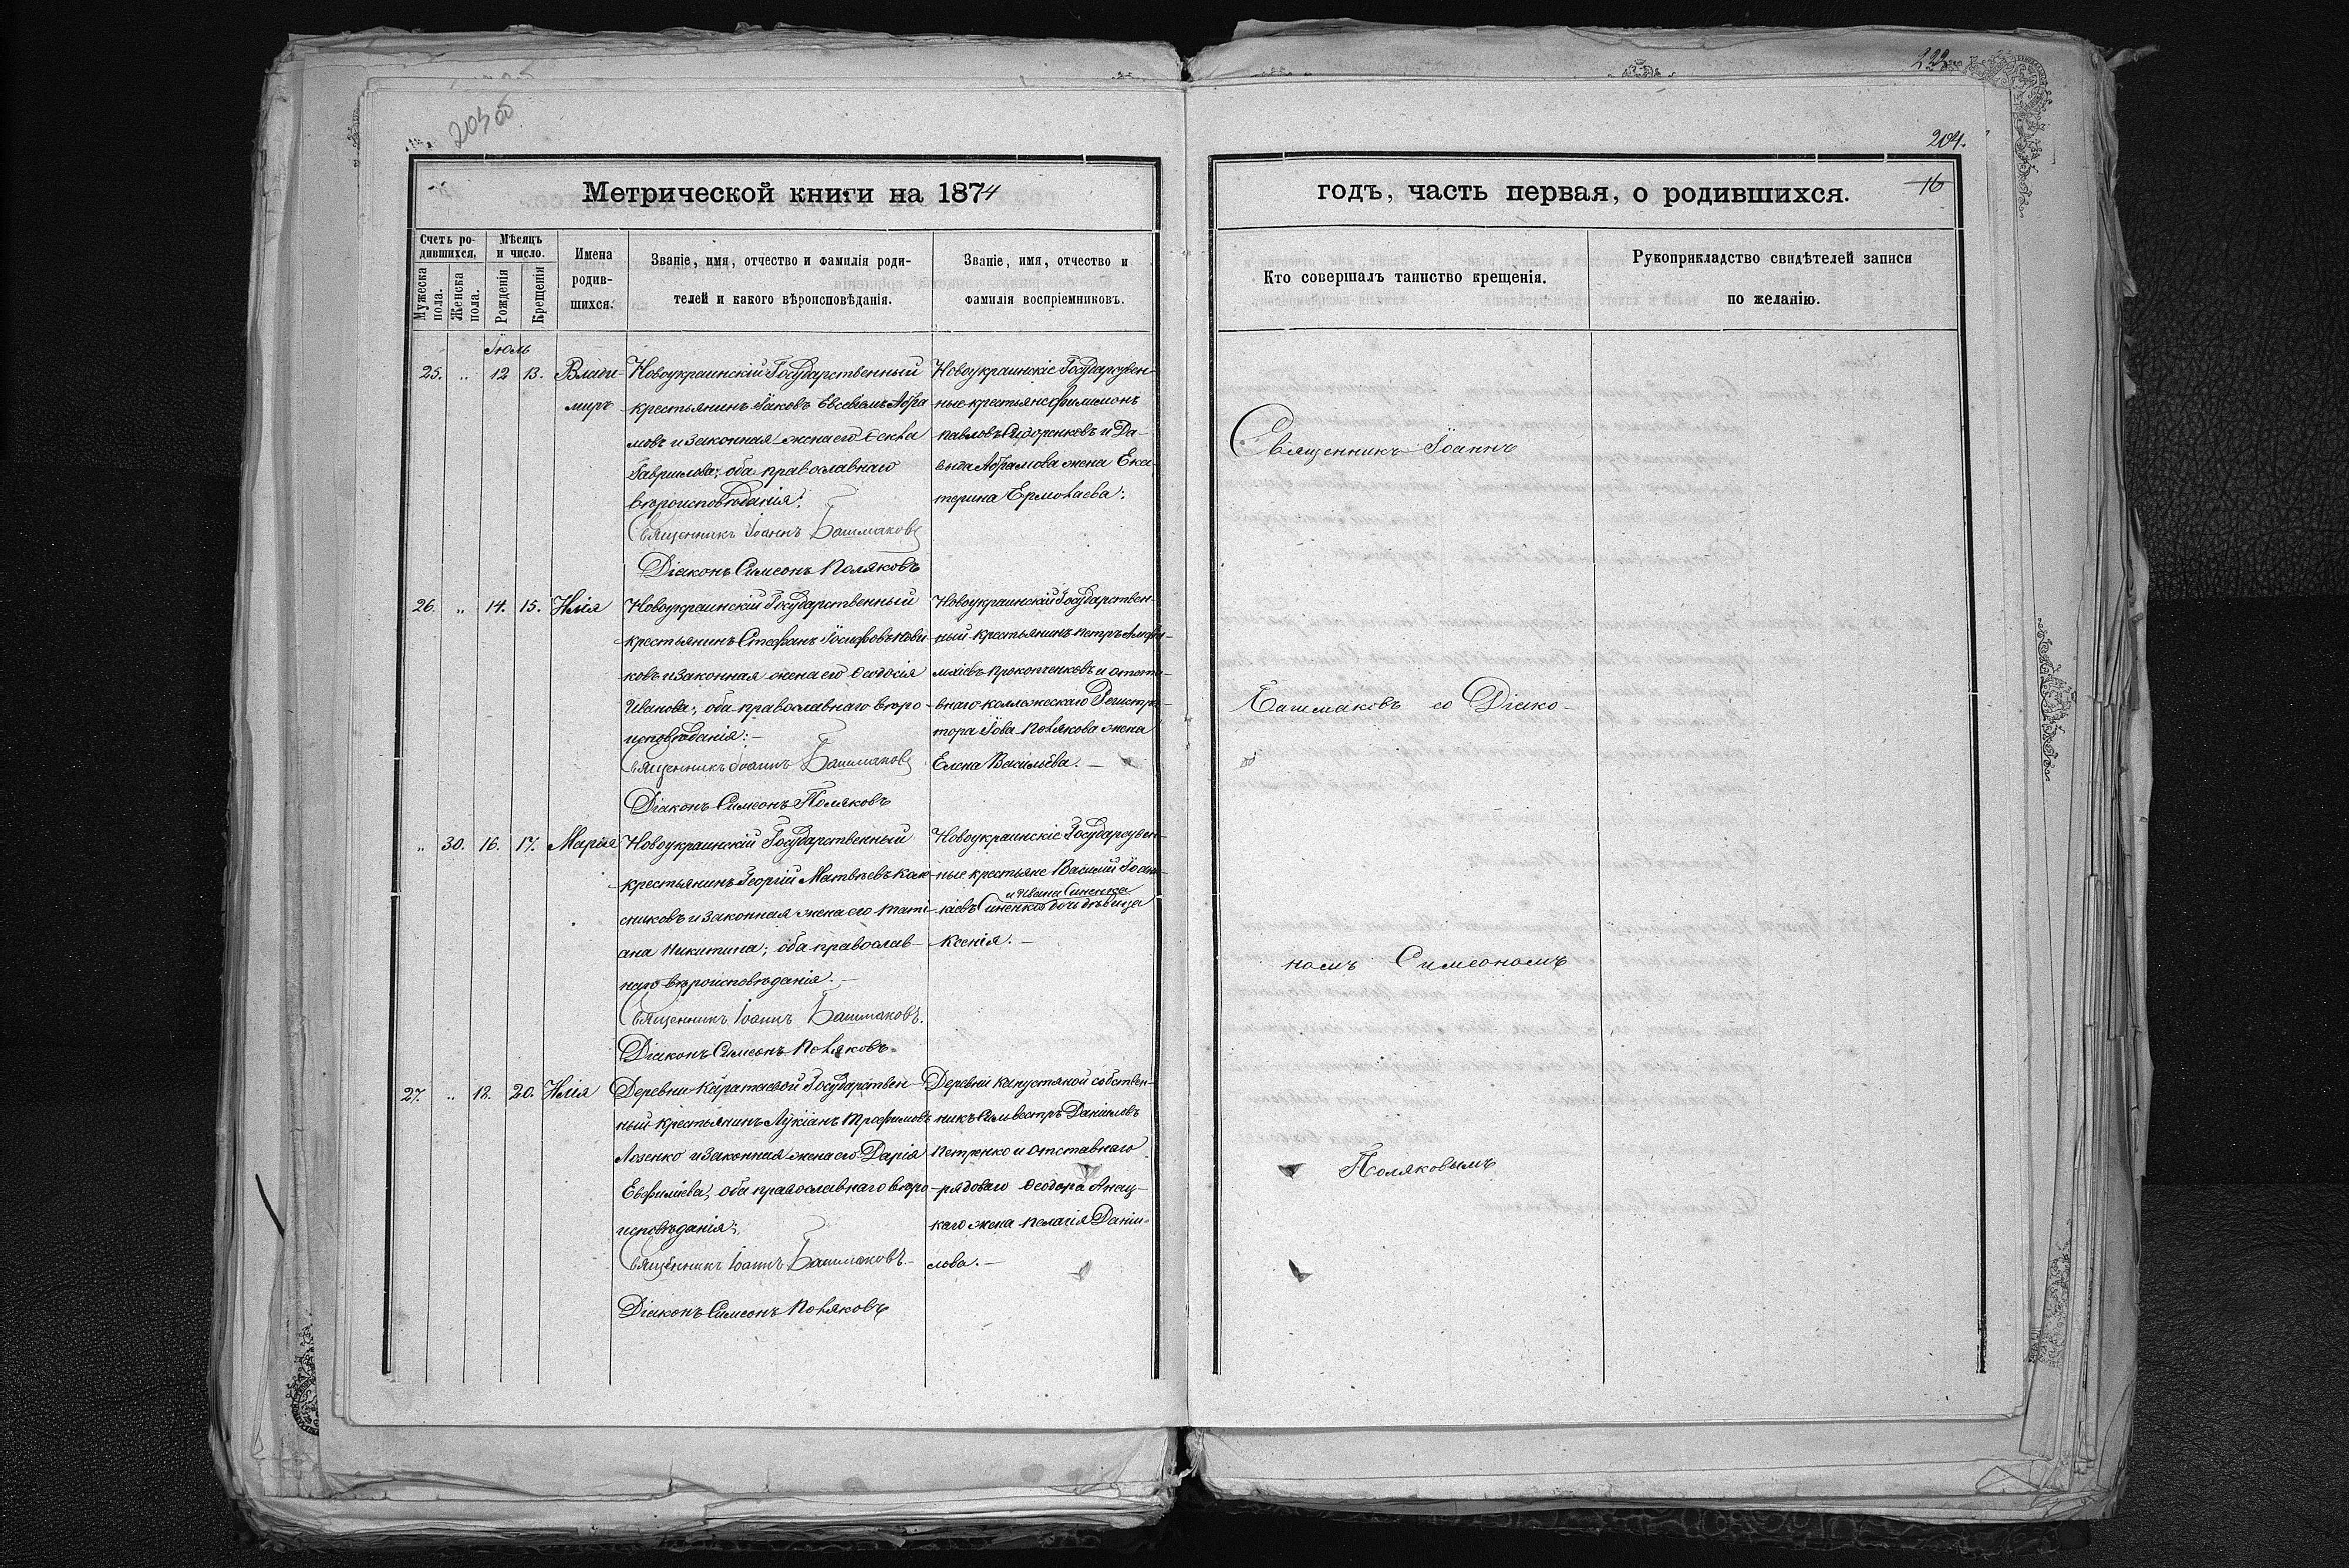 203об
222
204.
16
Метрической книги на 1874
годъ, часть первая, о родившихся.
Счетъ ро-
дившихся,
Мужеска
пола.
Женска
пола.
Мѣсяцъ
и число.
Рожденія
Крещенія
Имена
родив-
шихся.
Званіе, имя, отчество и фамилія роди-
телей и какого вѣроисповѣданія.
Званіе, имя, отчество и
фамилія воспріемниковъ.
Кто совершалъ таинство крещенія.
Рукоприкладство свидѣтелей записи
по желанію.
Іюль
25. „ 12 13. Влади-
миръ
Новоукраинскій Государственный
крестьянинъ Іаковъ Евсевіевъ Абра
мовъ и законная жена его Ѳекла
Гавриилова; оба православнаго
вѣроисповѣданія:
Священникъ Іоаннъ Башмаковъ
Діаконъ Симеонъ Поляковъ
Новоукраинскіе Государствен-
ные крестьяне Филимонъ
Павловъ Сидоренковъ и Да-
выда Абрамова жена Ека-
терина Ермолаева:
26. „ 14. 15. Илія
Новоукраинскій Государственный
крестьянинъ Стефанъ Іосифовъ Нови-
ковъ и законная жена его Ѳадосія
Иванова; оба православнаго вѣро-
исповѣданія:
Священникъ Іоаннъ Башмаковъ
Діаконъ Симеонъ Поляковъ
Новоукраинскій Государствен-
ный крестьянинъ Петръ
Прокопченковъ и отста-
внаго коллежскаго Регистра-
тора Іова Полякова жена
Елена Васильева.
„ 30. 16. 17. Марія
Новоукраинскій Государственный
крестьянинъ Георгій Матвѣевъ
и законная жена его Тати-
ана Никитина; оба православ-
наго вѣроисповѣданія.
Священникъ Іоаннъ Башмаковъ.
Діаконъ Симеонъ Поляковъ
Новоукраинскіе Государствен-
ные крестьяне Василій Іоан-
и Ивана Синенка
Синенко дочь дѣвица
Ксенія.
27. „ 18. 20. Илія
Деревни Каратаевой Государствен-
ный крестьянинъ Лукіанъ Трофимовъ
Лозенко и законная жена его Дарія
Евфиміева, оба православнаго вѣро-
исповѣданія;
Священникъ Іоаннъ Башмаковъ.
Діаконъ Симеонъ Поляковъ
Деревни Капустяной собствен-
никъ Сильвестръ Даніиловъ
Петренко и отставнаго
рядоваго Ѳеодора
жена Пелагія Даніи-
лова.
Священникъ Іоаннъ
Башмаковъ со Діако-
номъ Симеономъ
Поляковымъ